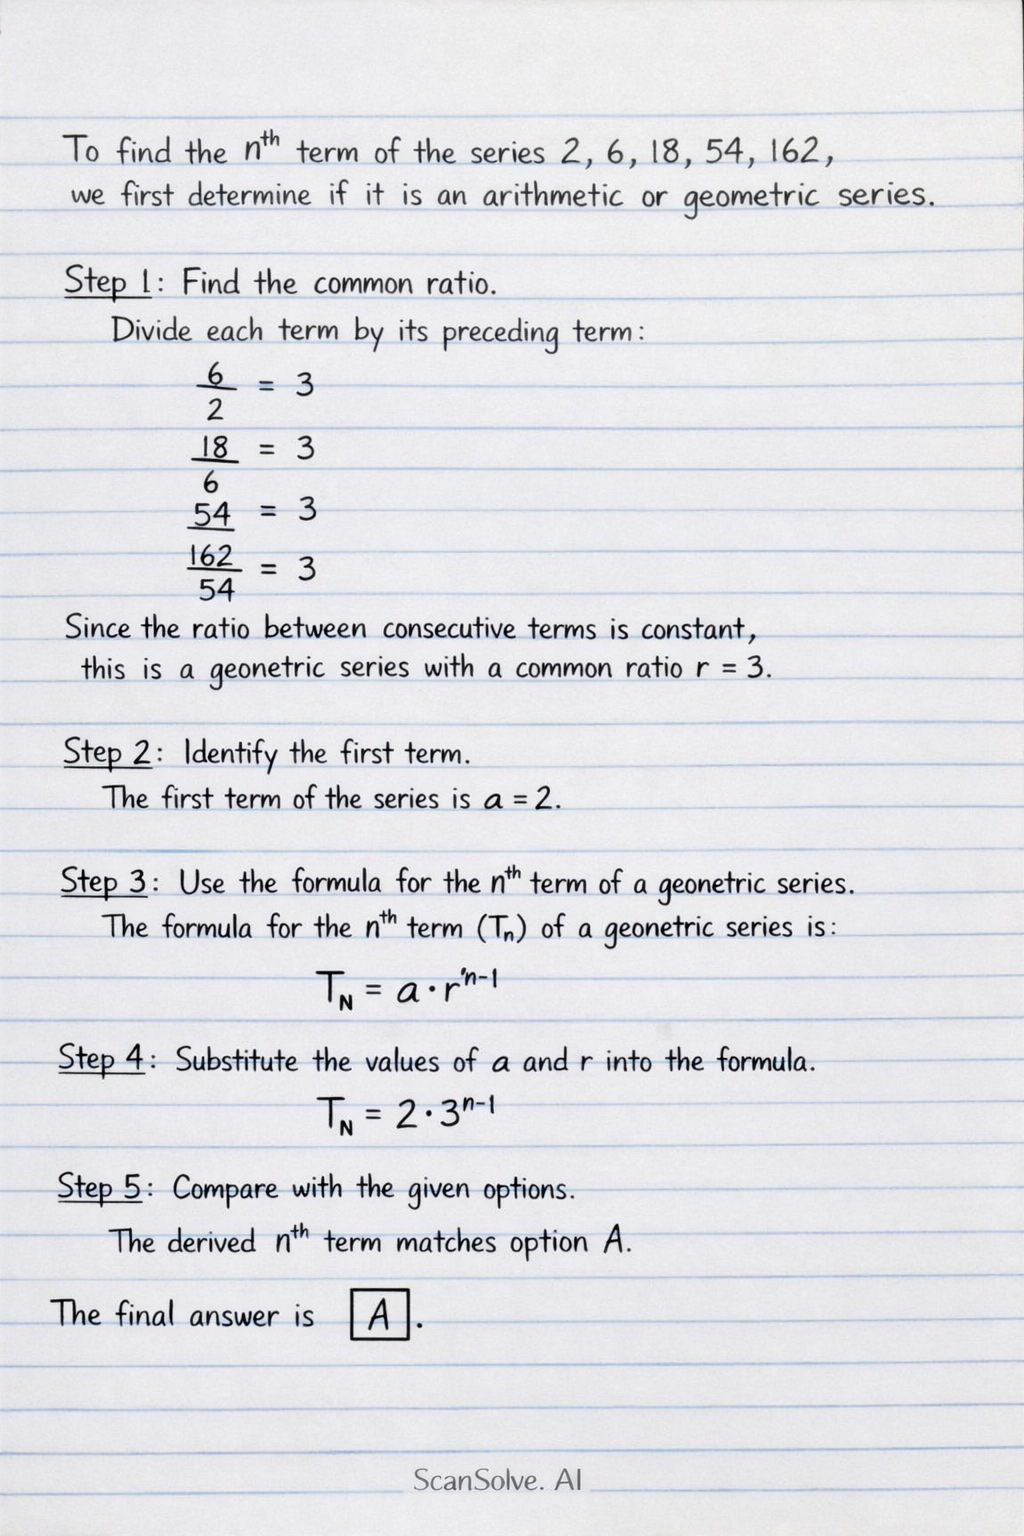 To find the nᵗʰ term of the series 2, 6, 18, 54, 162,
we first determine if it is an arithmetic or geometric series.
Step 1: Find the common ratio.
Divide each term by its preceding term:
6/2 = 3
18/6 = 3
54 = 3
162/54 = 3
Since the ratio between consecutive terms is constant,
this is a geonetric series with a common ratio r = 3.
Step 2: Identify the first term.
The first term of the series is a = 2.
Step 3: Use the formula for the nᵗʰ term of a geonetric series.
The formula for the nᵗʰ term (Tₙ) of a geonetric series is:
T_N = a · r^'n-1
Step 4: Substitute the values of a and r into the formula.
T_N = 2 · 3^n-1
Step 5: Compare with the given options.
The derived nᵗʰ term matches option A.
The final answer is A.
ScanSolve. AI